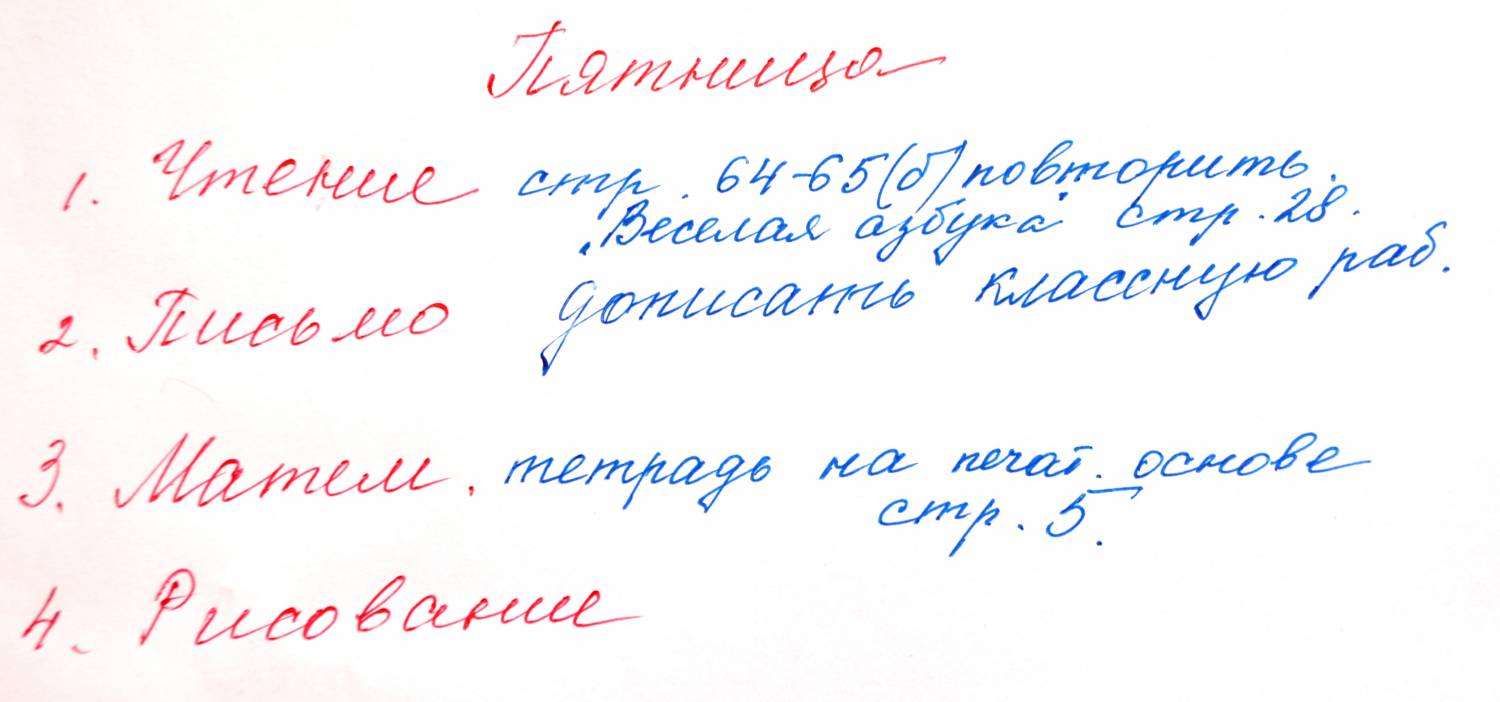 Пятница
1. Чтение стр. 64-65(б) повторить.
„Веселая азбука" стр. 28.
2. Письмо дописать классную раб.
3. Матем. тетрадь на печат. основе
стр. 5.
4. Рисование